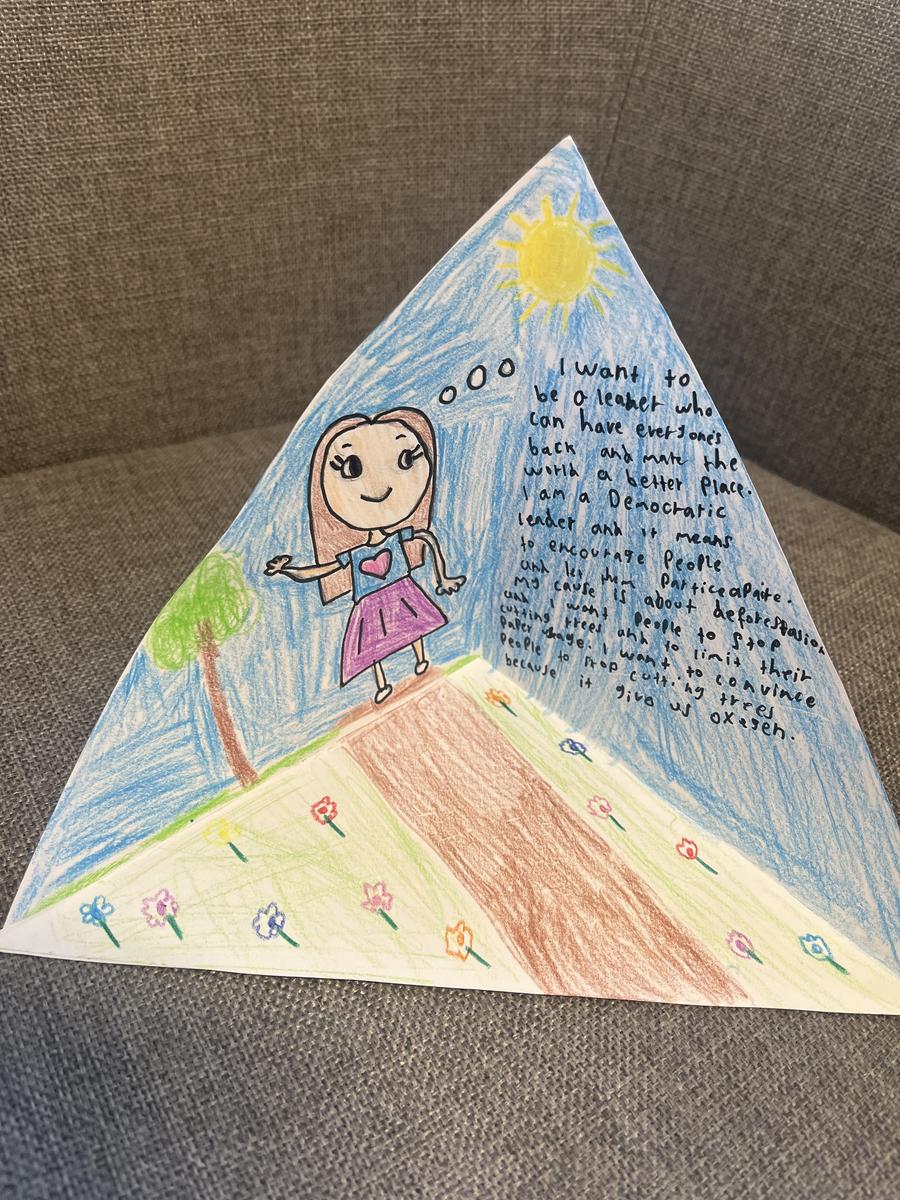 I want to
be a leader who
can have everyones
back and make the
world a better place.
I am a Democratic
leader and it means
to encourage people
and let them particeapaite.
my cause is about deforestasion
and I want people to stop
cutting trees and to limit their
paper usage. I want to convince
people to stop cutting trees
because it give us oxegen.